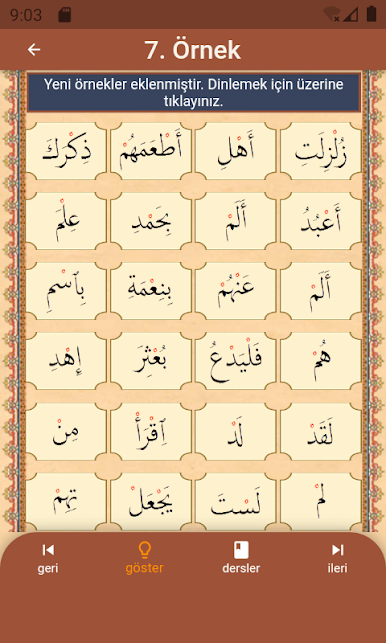 9:03
7. Örnek
Yeni örnekler eklenmiştir. Dinlemek için üzerine
tıklayınız.
زُلْزِلَتِ أَهْلِ أَطْعَمَهُمْ ذِكْرَكَ
أَعْبُدُ أَلَمْ بِحَمْدِ عِلْمَ
أَلَمْ عَنْهُمْ بِنِعْمَةِ بِاَسْمِ
هُمْ فَلْيَدْعُ بُعْثِرَ إِهْدِ
لَقَدْ لَدْ اِقْرَأْ مِنْ
لَمْ لَسْتَ يَجْعَلْ تِهِمْ
geri göster dersler ileri